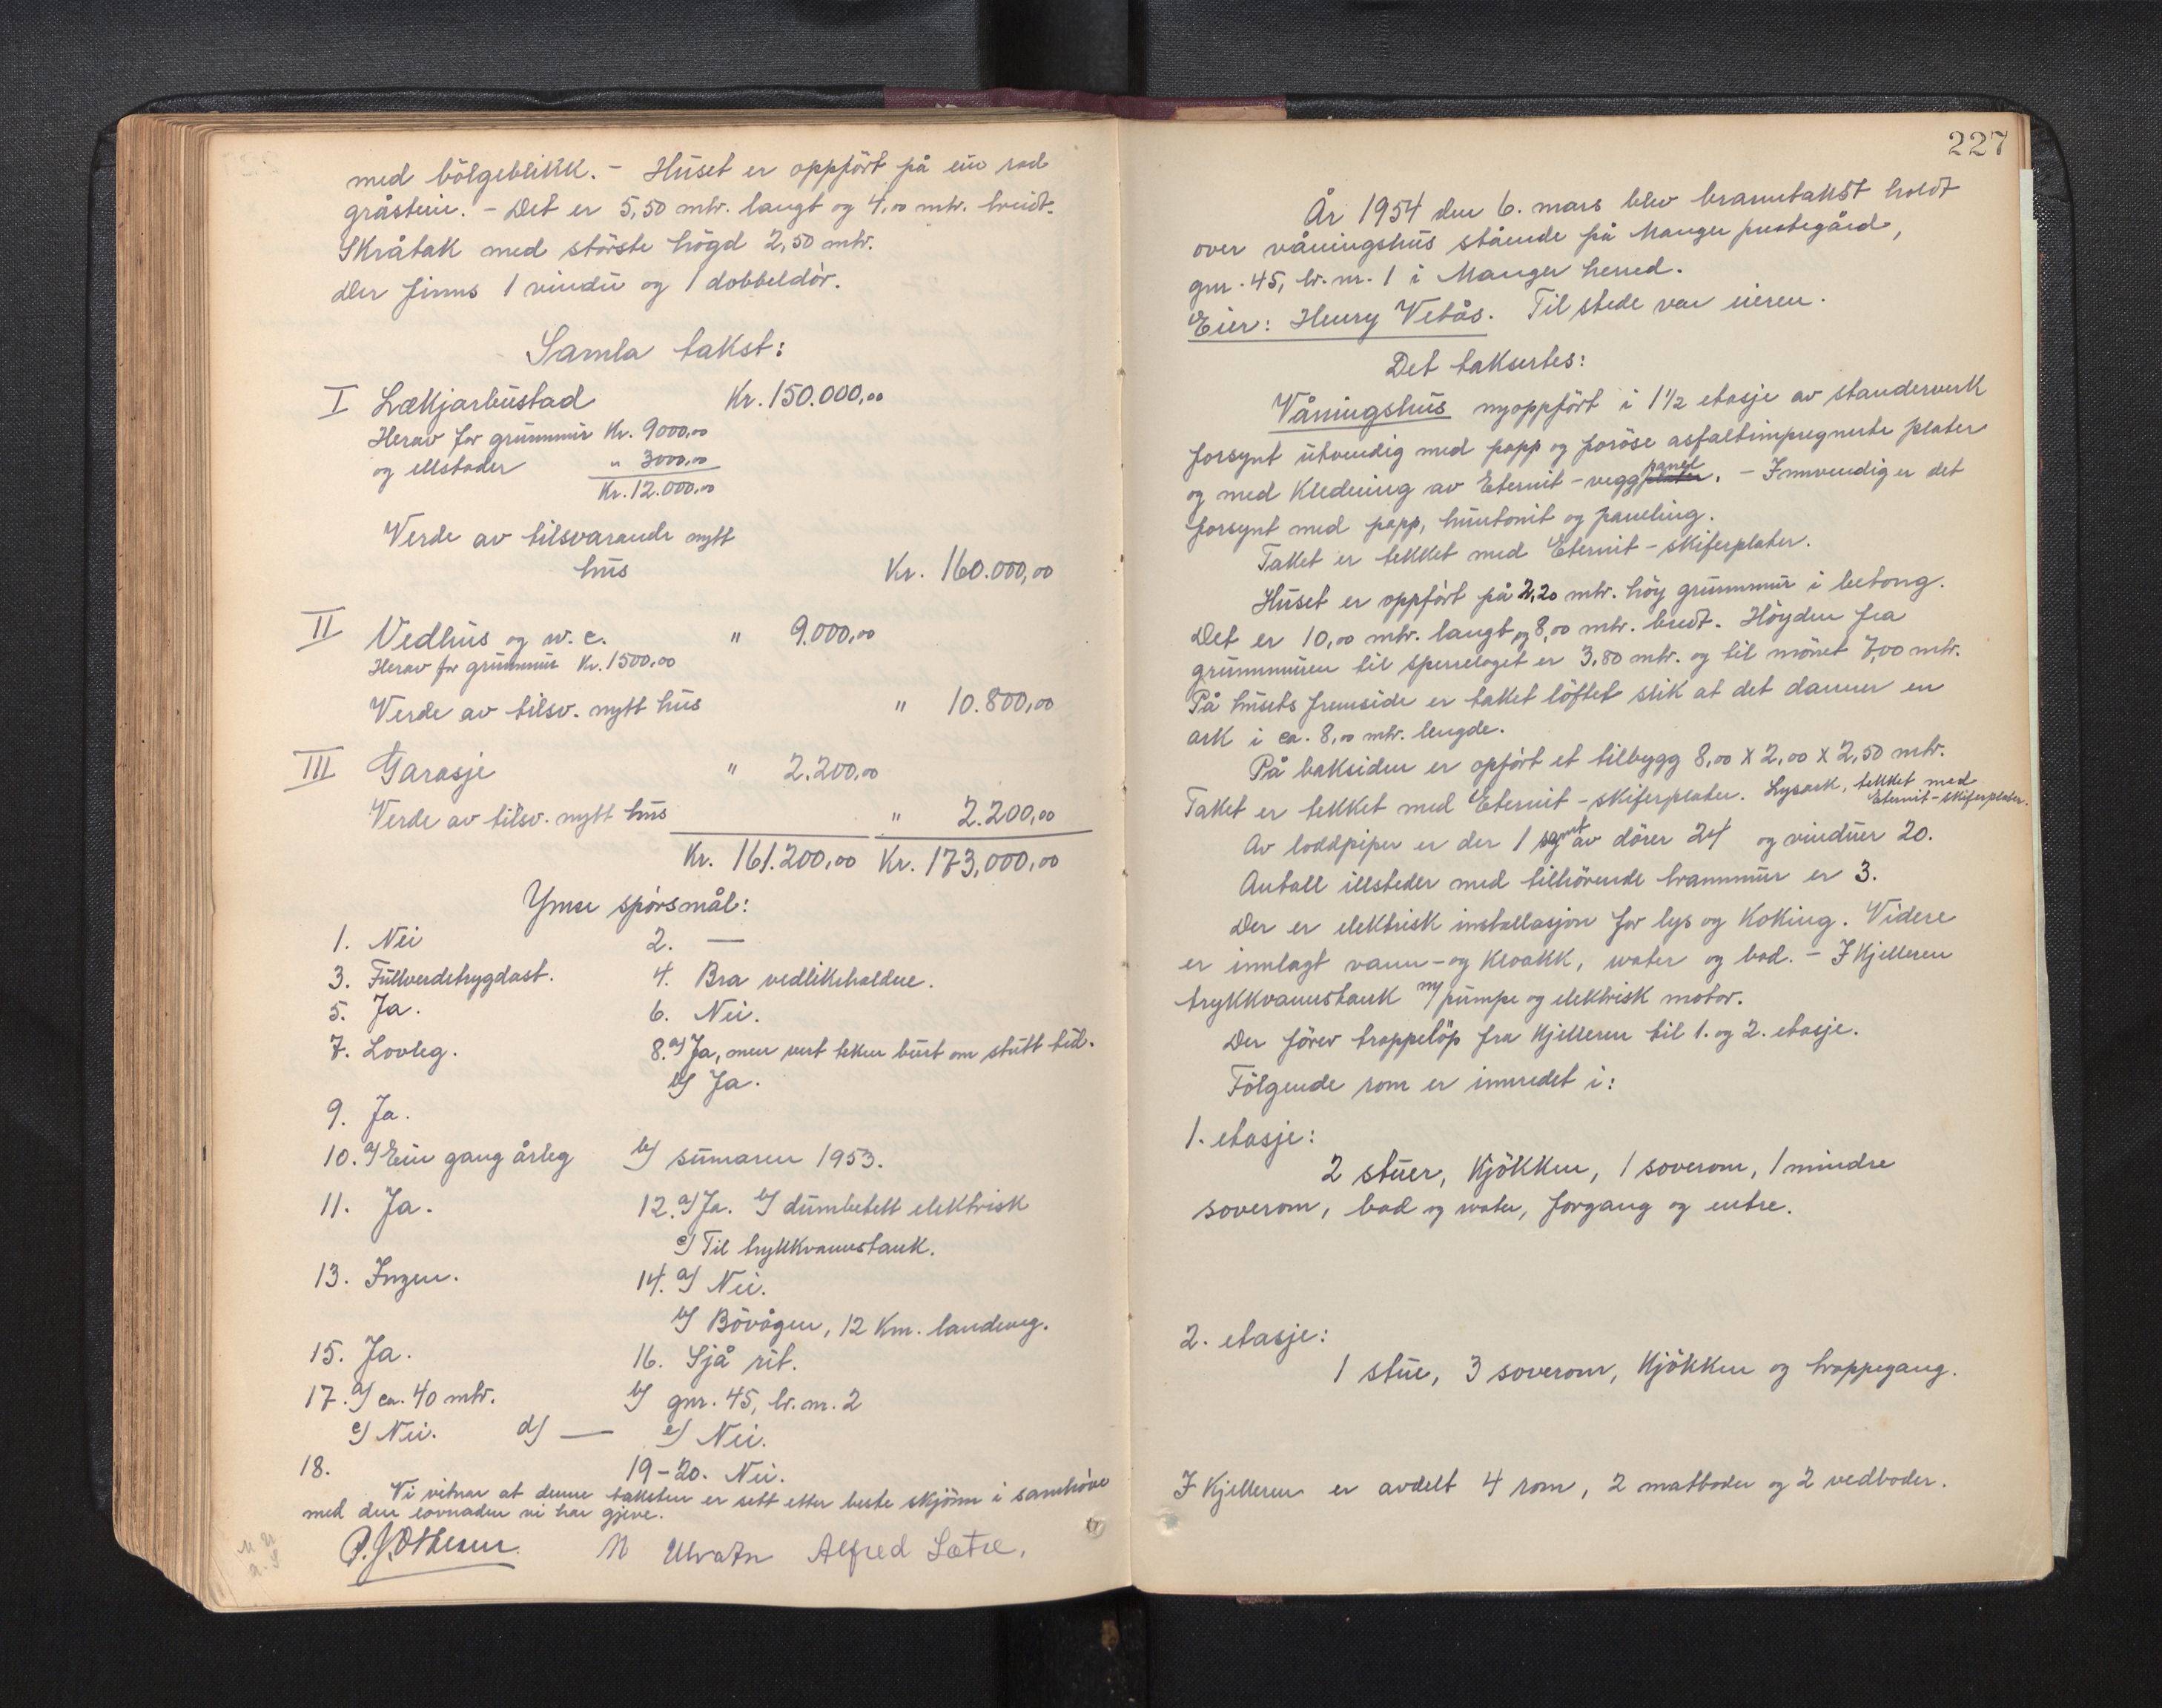 med bölgeblikk. - Huset er oppfört på ein rad
gråstein. - Det er 5,50 mtr. langt og 4,00 mtr. breidt.
Skråtak med störste högd 2,50 mtr.
Der finns 1 vindu og 1 dobbeldör.
Samla takst:
I Lækjarbustad Kr. 150.000,00
Herav for grunnmur Kr. 9000,00
og ellstader " 3000,00
Kr. 12.000,00
Verde av tilsvarande nytt
hus Kr. 160.000,00
II Vedhus og w.c. " 9.000,00
Herav for grunnmur Kr. 1500,00
Verde av tilsv. nytt hus " 10.800,00
III Garasje " 2.200,00
Verde av tilsv. nytt hus " 2.200,00
Kr. 161.200,00 Kr. 173,000,00
Ymse spörsmål:
1. Nei 2. —
3. Fullverdetrygdast. 4. Bra vedlikehaldne.
5. Ja. 6. Nei.
7. Lovleg. 8. a) Ja, men vert teken burt om stutt tid.
b) Ja.
9. Ja.
10. a) Ein gang årleg b) sumaren 1953.
11. Ja. 12. a) Ja. b) dumbetett elektrisk
c) Til trykkvannstank.
13. Ingen. 14. a) Nei.
b) Bövågen, 12 Km. landeveg.
15. Ja. 16. Sjå rit.
17. a) ca. 40 mtr. b) gnr. 45, br. nr. 2
c) Nei. d) — e) Nei.
18. 19-20. Nei.
Vi vitnar at denne taksten er sett etter beste skjönn i samhöve
med den lovnaden vi har gjeve.
P.J. Othesen N Ulvatn Alfred Sætre.
227
År 1954 den 6. mars blev branntakst holdt
over våningshus stående på Manger prestegård,
gnr. 45, br. nr. 1 i Manger herred.
Eier: Henry Vetås. Til stede var eieren.
Det taksertes:
Våningshus nyoppfört i 1 1/2 etasje av standerverk
forsynt utvendig med papp og poröse asfaltimpregnerte plater
og med kledning av Eternit-veggplater panel. - Innvendig er det
forsynt med papp, huntonit og paneling.
Taket er tekket med Eternit-skiferplater.
Huset er oppfört på 2,20 mtr. höy grunnmur i betong.
Det er 10,00 mtr. langt og 8,00 mtr. bredt. Höyden fra
grunnmuren til sperrelaget er 3,80 mtr. og til mönet 7,00 mtr.
På husets fremside er taket löftet slik at det danner en
ark i ca. 8,00 mtr. lengde.
På baksiden er opfört et tilbygg 8,00 x 2,00 x 2,50 mtr.
Taket er tekket med Eternit-skiferplater. Lysark, tekket med
Eternit-skiferplater.
Av loddpiper er der 1 samt av dörer 24 og vinduer 20.
Antall illsteder med tilhörende brannmur er 3.
Der er elektrisk installasjon for lys og koking. Videre
er innlagt vann- og kloakk, water og bad. - I kjelleren
trykkvannstank m/pumpe og elektrisk motor.
Der förer trappelöp fra kjelleren til 1. og 2. etasje.
Fölgende rom er innredet i:
1. etasje:
2 stuer, kjökken, 1 soverom, 1 mindre
soverom, bad og water, forgang og entre.
2. etasje:
1 stue, 3 soverom, kjökken og trappegang.
I kjelleren er avdelt 4 rom, 2 matboder og 2 vedboder.